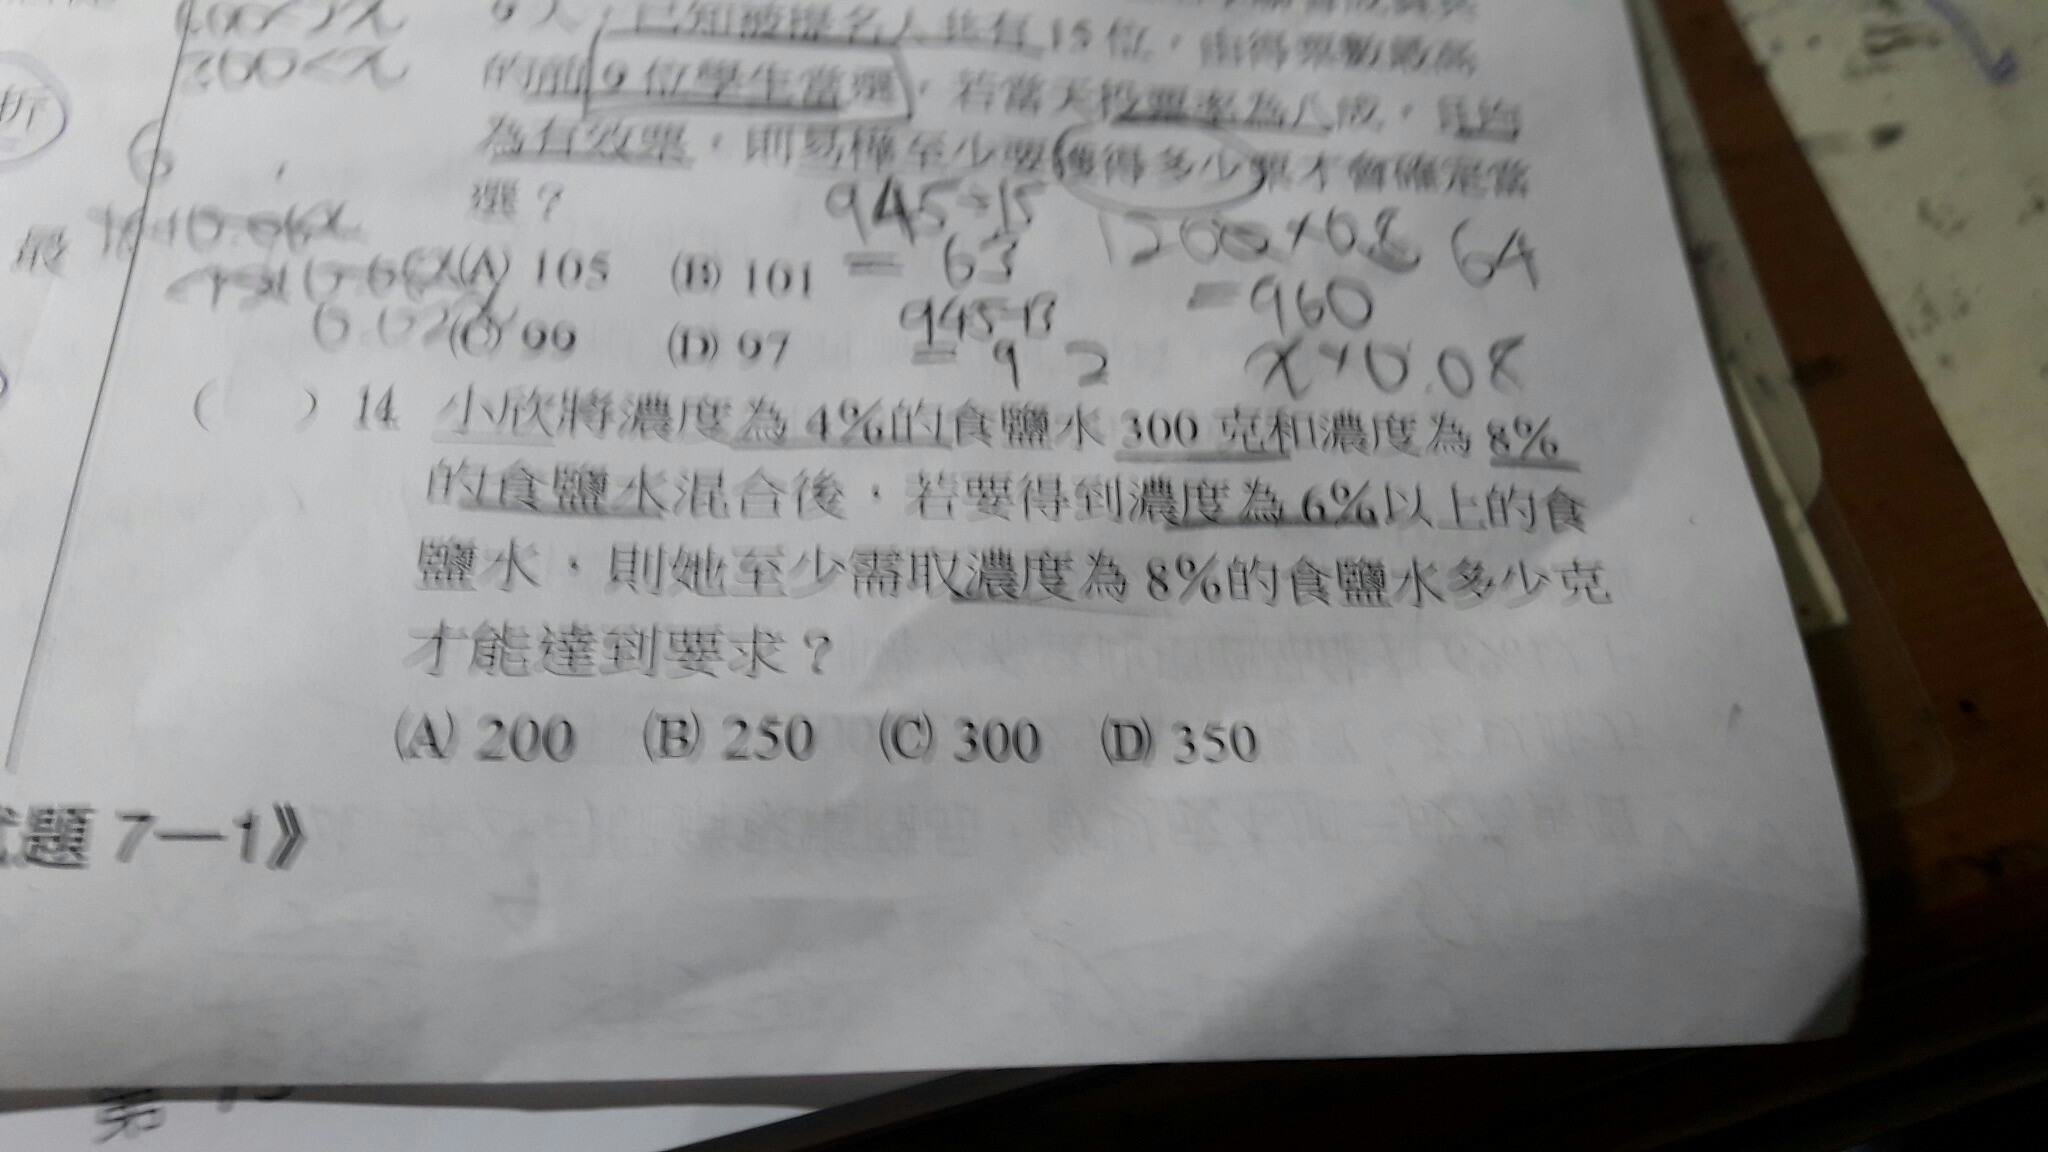 400<2x
9人，已知被提名人共有15位，由得票數最高
200<x
的前9位學生當選，若當天投票率為八成，且均
折
為有效票，則易樺至少要獲得多少票才會確定當
選？
945÷15
1200×0.8
64
= 63
=960
(A) 105 (B) 101
945-13
(C) 99 (D) 97
= 9 2
x×0.08
( ) 14. 小欣將濃度為4%的食鹽水300克和濃度為8%
的食鹽水混合後，若要得到濃度為6%以上的食
鹽水，則她至少需取濃度為8%的食鹽水多少克
才能達到要求？
(A) 200 (B) 250 (C) 300 (D) 350
試題7—1》
第